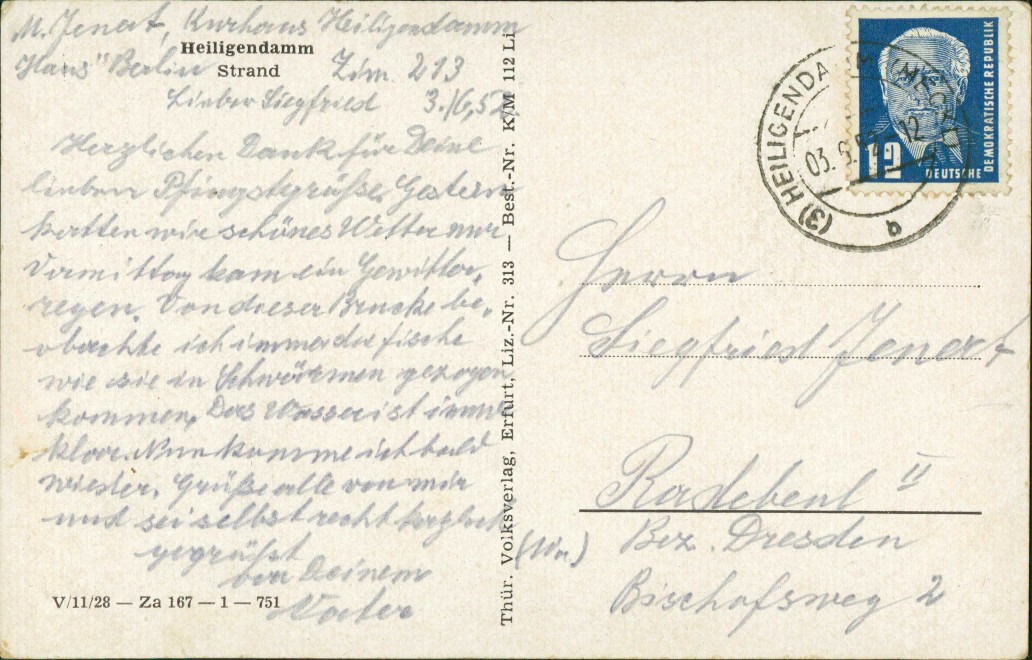 M. Jenat, Kurhaus Heiligendamm
Heiligendamm
Haus "Berlin
Strand
Zim. 213
Lieber Siegfried 3./6,52
Herzlichen Dank für Deine
lieben Pfingstgrüße, Gestern
hatten wir schönes Wetter nur
Vormittag kam ein Gewitter,
regen. Von dieser Brücke be,
obachte ich immer die Fische
wie sie in Schwärmen gezogen
kommen, Das Wasser ist immer
klar. Nun komme ich bald
wieder, Grüße alle von mir
und sei selbst recht herzlich
gegrüßt
von Deinem
Vater
V/11/28 — Za 167 — 1 — 751
Thür. Volksverlag, Erfurt, Liz.-Nr. 313 — Best.-Nr. K/M 112 Li
DEUTSCHE DEMOKRATISCHE REPUBLIK
12
(3) HEILIGENDAMM
03.6.52 12
b
Herrn
Siegfried Jenat
Radebeul II
Bez. Dresden
Bischofsweg 2